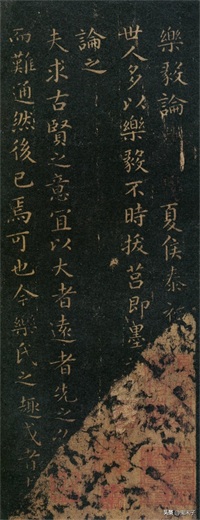 樂毅論 夏侯泰
世人多以樂毅不時拔莒即墨
論之
夫求古賢之意宜以大者遠者先之
而難通然後已焉可也今樂氏之趣或者